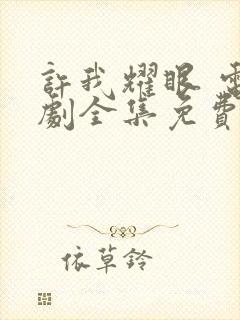 許我耀眼 電
劇全集免費
依草鈴